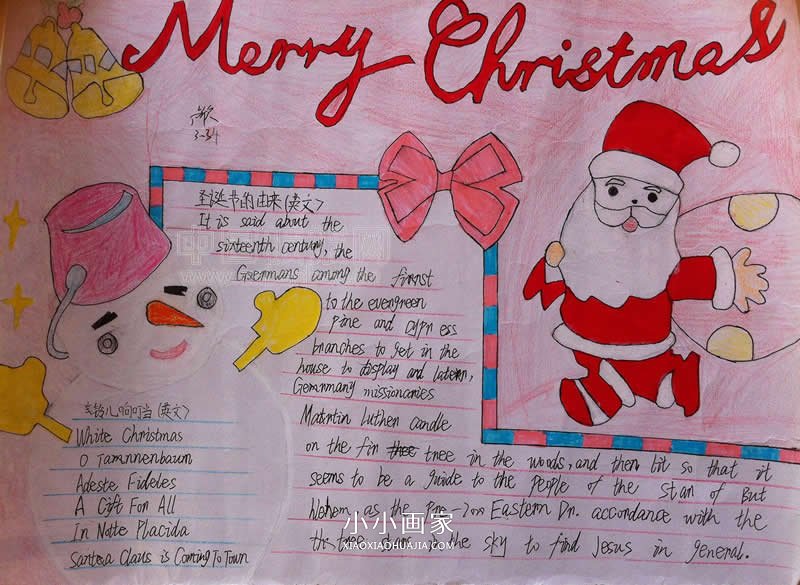 Merry Christmas
3-34
圣诞节的由来(英文)
It is said about the
sixteenth century, the
Gsermans among the firnst
to the evengreen
pine and
branches to get in the
house to display and latern,
Gemnmany missionanies
Luthen candle
on the fin thee tnee in the woods, and then lit so that it
seems to be a guide to the people of the Stan of But
as the Eastern Dn. accordance with the
the sky to find Jesus in general.
铃儿响叮当(英文)
White Christmas
O Tamnnenbaun
Adeste Fideles
A Gift Fon All
In Notte Placida
Santea Claus is Coming To Town
小小画家
XIAOXIAOHUAJIA.COM